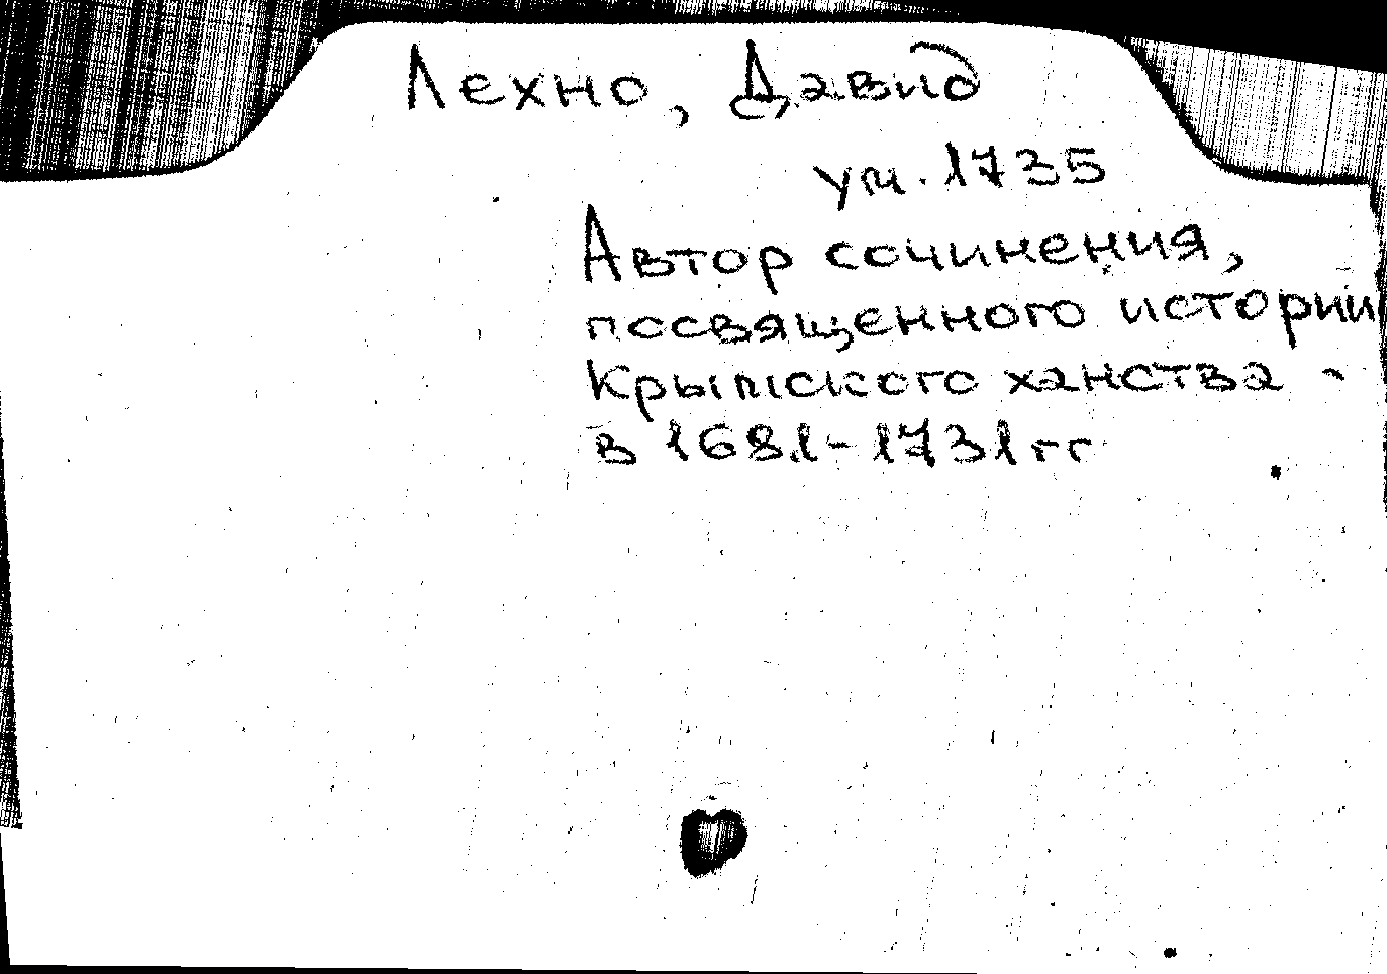 Лехно, Давид
ум. 1735
Автор сочинения,
посвященного истории
Крымского ханства -
в 1681-1731 гг